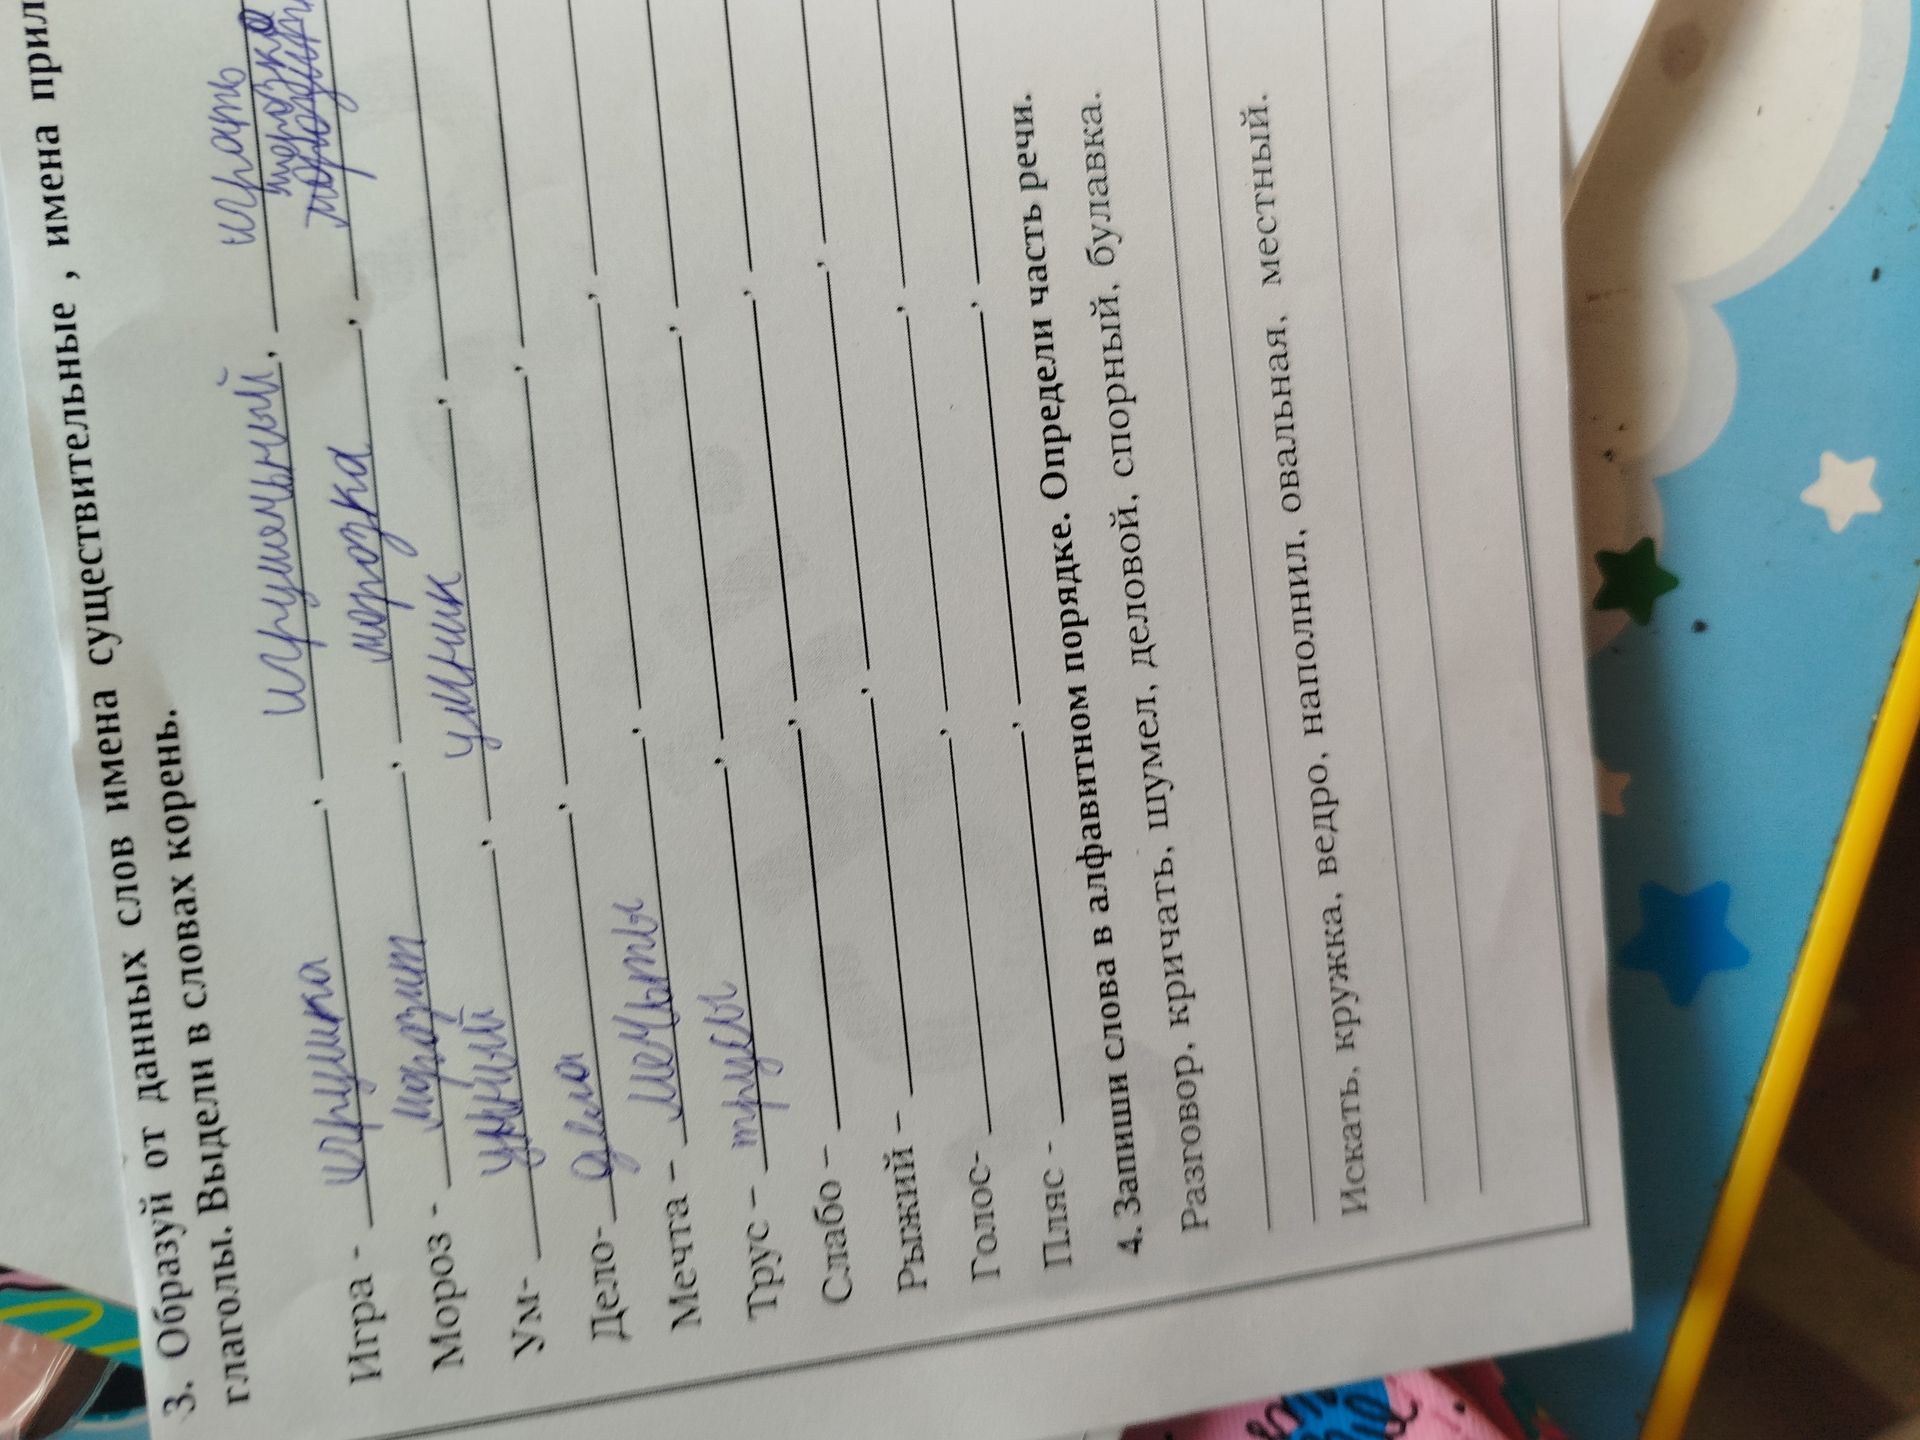 3. Образуй от данных слов имена существительные , имена прил
глаголы. Выдели в словах корень.
Игра - игрушка , игрушечный, играть
Мороз - морозит , морозка ,
Ум- умный , умник ,
Дело- дела , ,
Мечта – мечьты , ,
Трус – трусы , ,
Слабо – , ,
Рыжий – , ,
Голос- , ,
Пляс - , ,
4. Запиши слова в алфавитном порядке. Определи часть речи.
Разговор, кричать, шумел, деловой, спорный, булавка.
Искать, кружка, ведро, наполнил, овальная, местный.